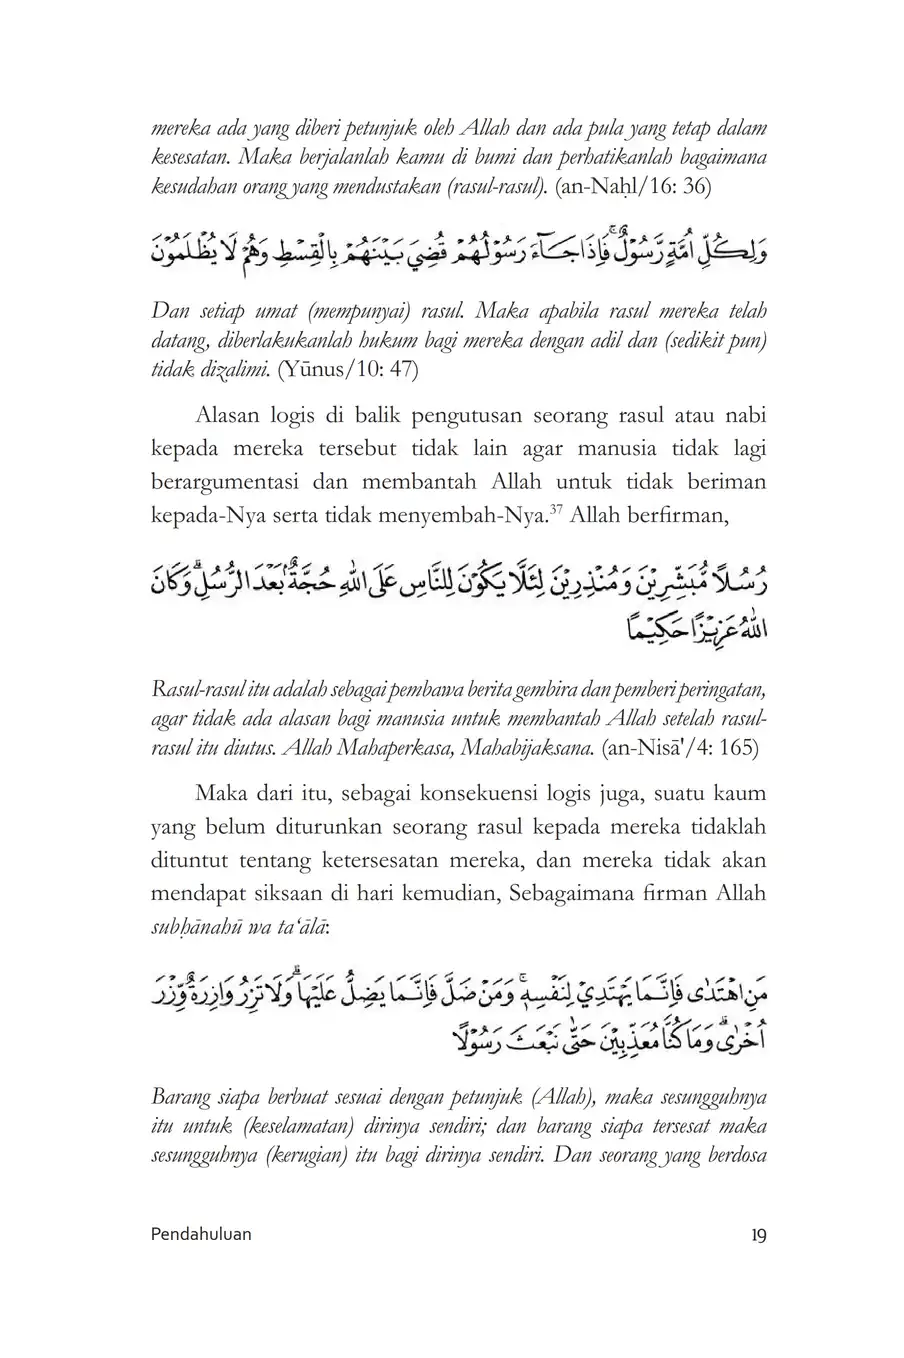 mereka ada yang diberi petunjuk oleh Allah dan ada pula yang tetap dalam
kesesatan. Maka berjalanlah kamu di bumi dan perhatikanlah bagaimana
kesudahan orang yang mendustakan (rasul-rasul). (an-Naḥl/16: 36)
وَلِكُلِّ اُمَّةٍ رَّسُوْلٌ ۚ فَاِذَا جَاۤءَ رَسُوْلُهُمْ قُضِيَ بَيْنَهُمْ بِالْقِسْطِ وَهُمْ لَا يُظْلَمُوْنَ
Dan setiap umat (mempunyai) rasul. Maka apabila rasul mereka telah
datang, diberlakukanlah hukum bagi mereka dengan adil dan (sedikit pun)
tidak dizalimi. (Yūnus/10: 47)
Alasan logis di balik pengutusan seorang rasul atau nabi
kepada mereka tersebut tidak lain agar manusia tidak lagi
berargumentasi dan membantah Allah untuk tidak beriman
kepada-Nya serta tidak menyembah-Nya.³⁷ Allah berfirman,
رُسُلًا مُّبَشِّرِيْنَ وَمُنْذِرِيْنَ لِئَلَّا يَكُوْنَ لِلنَّاسِ عَلَى اللّٰهِ حُجَّةٌ ۢ بَعْدَ الرُّسُلِ ۗ وَكَانَ
اللّٰهُ عَزِيْزًا حَكِيْمًا
Rasul-rasul itu adalah sebagai pembawa berita gembira dan pemberi peringatan,
agar tidak ada alasan bagi manusia untuk membantah Allah setelah rasul-
rasul itu diutus. Allah Mahaperkasa, Mahabijaksana. (an-Nisā'/4: 165)
Maka dari itu, sebagai konsekuensi logis juga, suatu kaum
yang belum diturunkan seorang rasul kepada mereka tidaklah
dituntut tentang ketersesatan mereka, dan mereka tidak akan
mendapat siksaan di hari kemudian, Sebagaimana firman Allah
subḥānahū wa ta‘ālā:
مَنِ اهْتَدٰى فَاِنَّمَا يَهْتَدِيْ لِنَفْسِهٖ ۚ وَمَنْ ضَلَّ فَاِنَّمَا يَضِلُّ عَلَيْهَا ۗ وَلَا تَزِرُ وَازِرَةٌ وِّزْرَ
اُخْرٰى ۗ وَمَا كُنَّا مُعَذِّبِيْنَ حَتّٰى نَبْعَثَ رَسُوْلًا
Barang siapa berbuat sesuai dengan petunjuk (Allah), maka sesungguhnya
itu untuk (keselamatan) dirinya sendiri; dan barang siapa tersesat maka
sesungguhnya (kerugian) itu bagi dirinya sendiri. Dan seorang yang berdosa
Pendahuluan 19